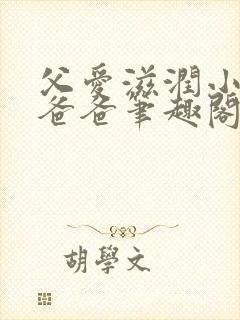 父愛滋潤小
爸爸筆趣閣
胡學文